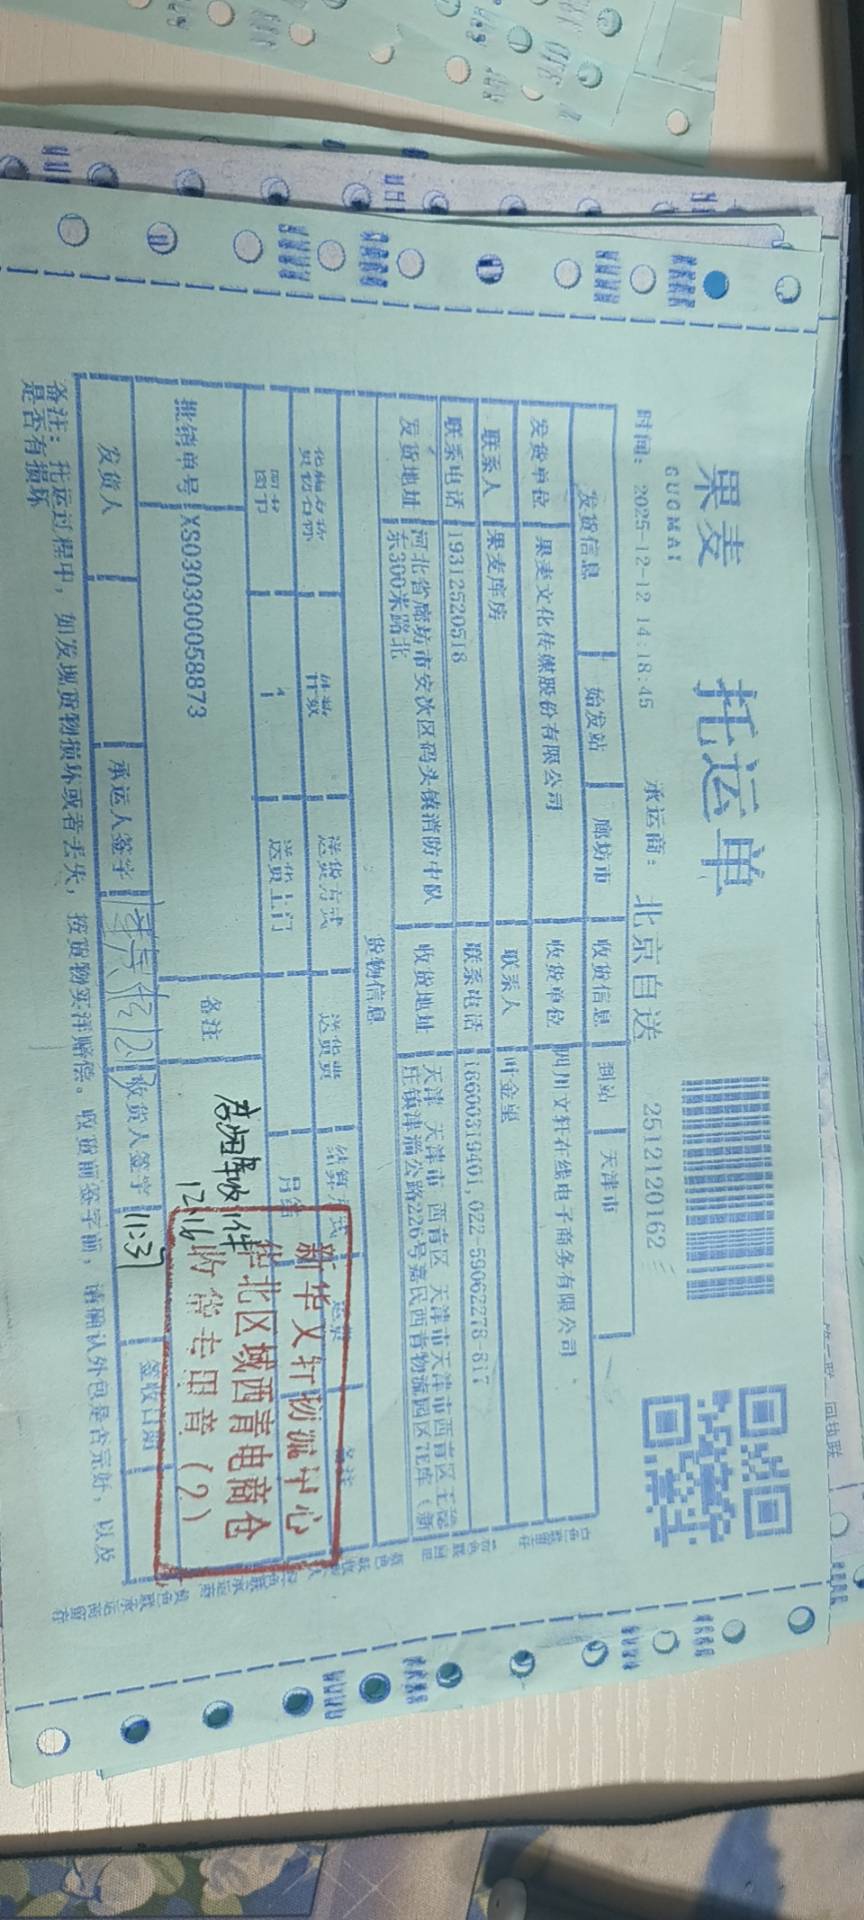 果麦
GUOMAI
托运单
时间: 2025-12-12 14:18:45 承运商: 北京自送 2512120162
第二联 回执联
发货信息 始发站 廊坊市 收货信息 到站 天津市
发货单位 果麦文化传媒股份有限公司 收货单位 四川文轩在线电子商务有限公司
联系人 果麦库房 联系人 叶金星
联系电话 19312520518 联系电话 18600319401,022-59062278-817
发货地址 河北省廊坊市安次区码头镇消防中队东300米路北 收货地址 天津 天津市 西青区 天津市天津市西青区王稳庄镇津淄公路226号嘉民西青物流园区花库(新
货物信息
货物名称 件数 送货方式 送货费 结算方式 运费 备注
图书 1 送货上门 月结
批销单号 XS030300058873 备注
收1件
12.16
新华文轩物流中心
华北区域西青电商仓
收货专用章(2)
发货人 承运人签字 收货人签字 11:37 签收日期
备注: 托运过程中, 如发现货物损坏或者丢失, 按货物实洋赔偿。收货前签字前, 请确认外包是否完好, 以及
是否有损坏